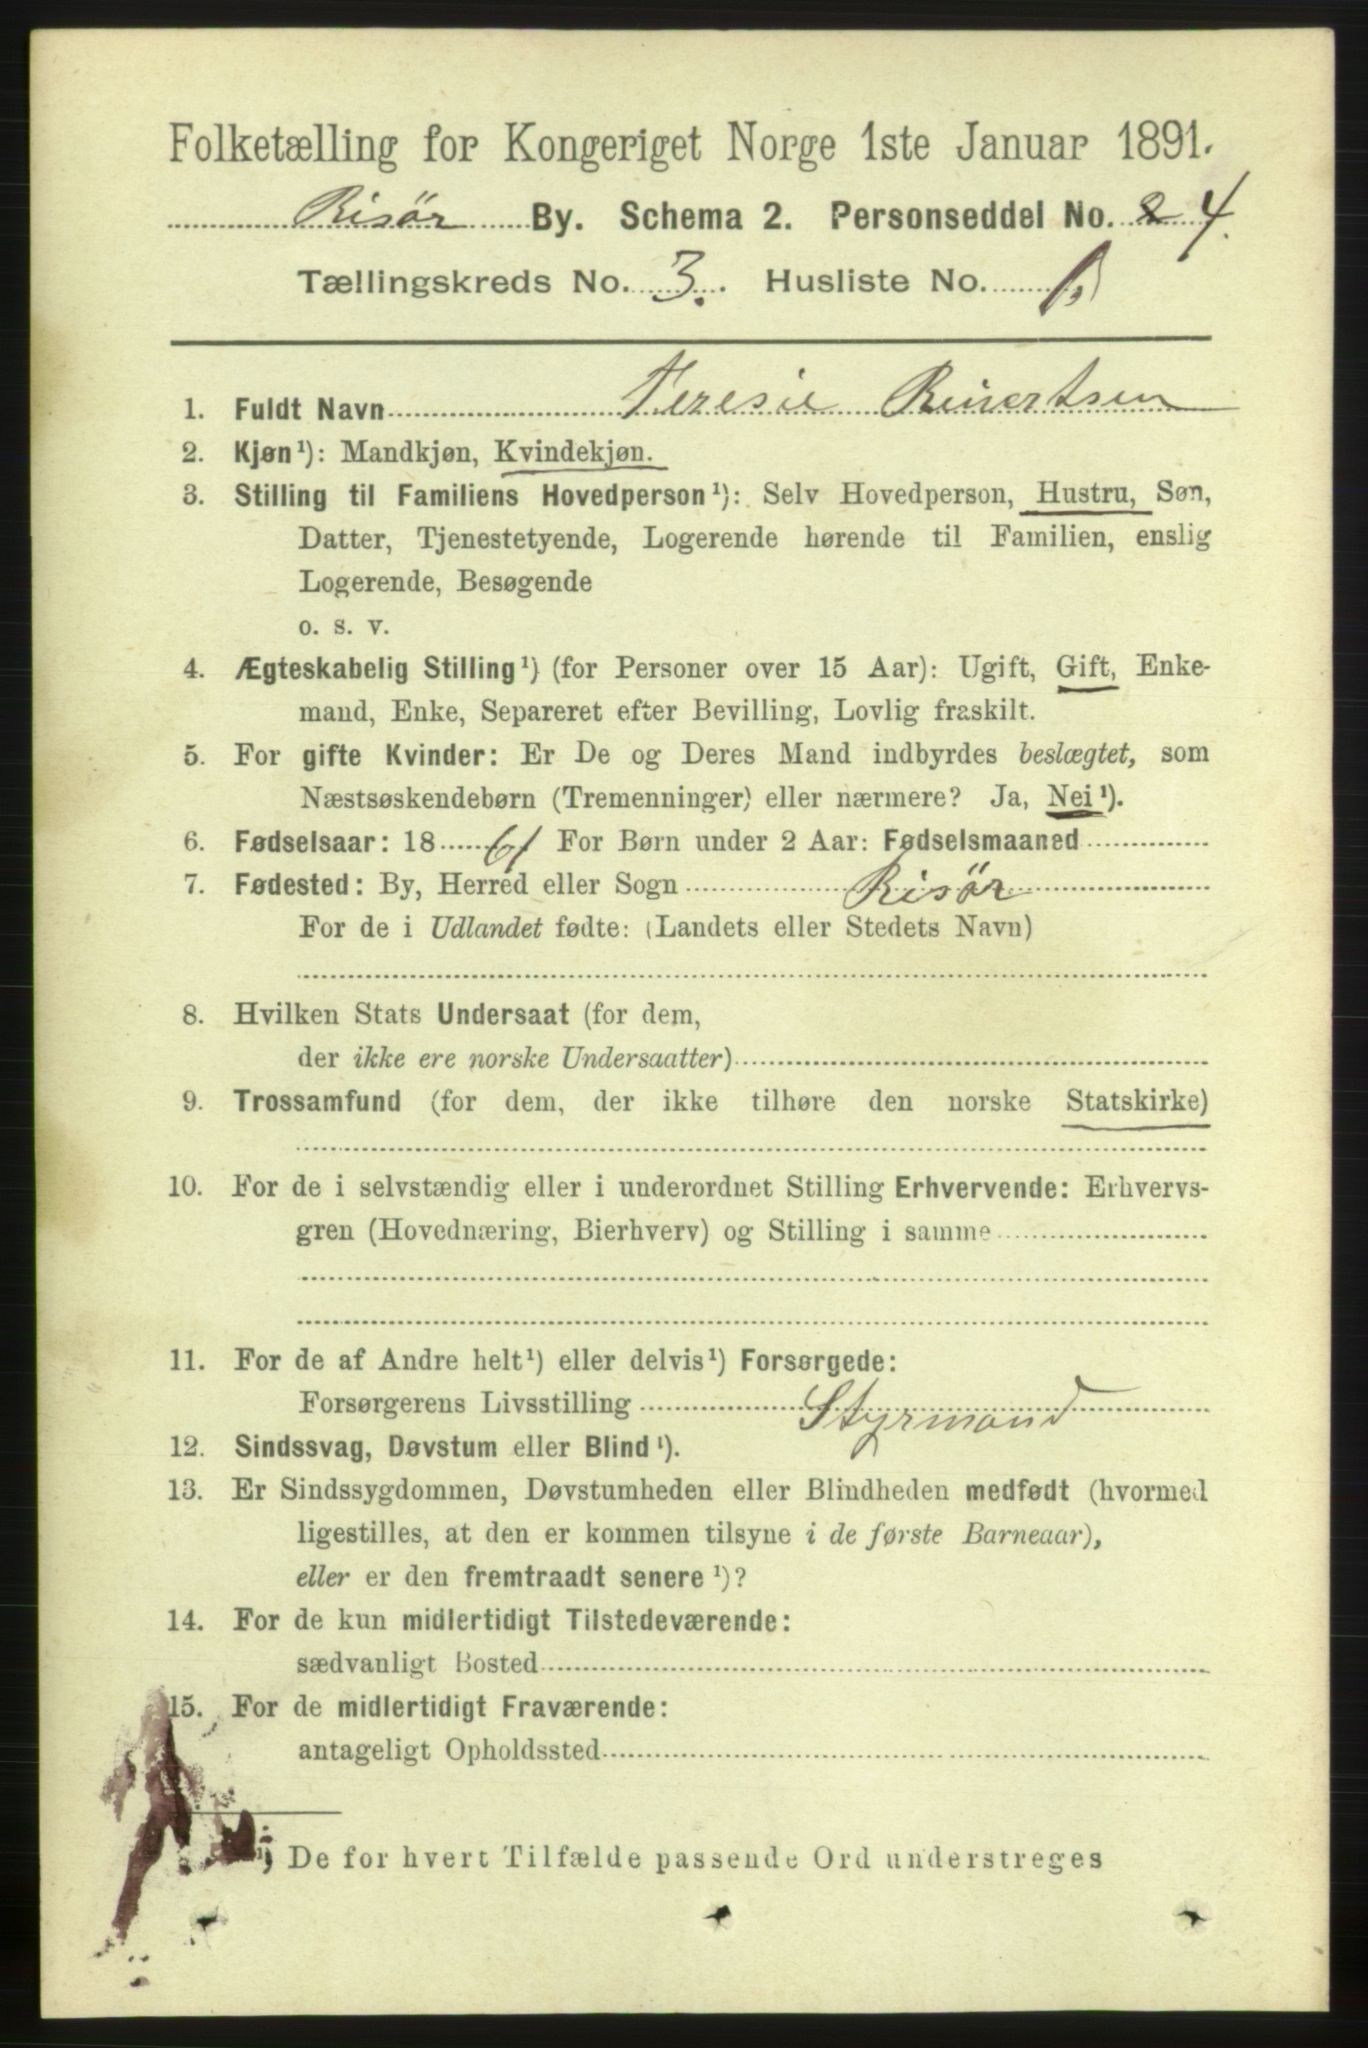 Folketælling for Kongeriget Norge 1ste Januar 1891.
Risör By. Schema 2. Personseddel No. 2 4.
Tællingskreds No. 3. Husliste No.
1. Fuldt Navn Teresie Reinertsen
2. Kjøn¹): Mandkjøn, Kvindekjøn.
3. Stilling til Familiens Hovedperson¹): Selv Hovedperson, Hustru, Søn,
Datter, Tjenestetyende, Logerende hørende til Familien, enslig
Logerende, Besøgende
o. s. v.
4. Ægteskabelig Stilling¹) (for Personer over 15 Aar): Ugift, Gift, Enke-
mand, Enke, Separeret efter Bevilling, Lovlig fraskilt.
5. For gifte Kvinder: Er De og Deres Mand indbyrdes beslægtet, som
Næstsøskendebørn (Tremenninger) eller nærmere? Ja, Nei¹).
6. Fødselsaar: 18 61 For Børn under 2 Aar: Fødselsmaaned
7. Fødested: By, Herred eller Sogn Risör
For de i Udlandet fødte: (Landets eller Stedets Navn)
8. Hvilken Stats Undersaat (for dem,
der ikke ere norske Undersaatter)
9. Trossamfund (for dem, der ikke tilhøre den norske Statskirke)
10. For de i selvstændig eller i underordnet Stilling Erhvervende: Erhvervs-
gren (Hovednæring, Bierhverv) og Stilling i samme
11. For de af Andre helt¹) eller delvis¹) Forsørgede:
Forsørgerens Livsstilling Styrmand
12. Sindssvag, Døvstum eller Blind¹).
13. Er Sindssygdommen, Døvstumheden eller Blindheden medfødt (hvormed
ligestilles, at den er kommen tilsyne i de første Barneaar),
eller er den fremtraadt senere¹)?
14. For de kun midlertidigt Tilstedeværende:
sædvanligt Bosted
15. For de midlertidigt Fraværende:
antageligt Opholdssted
¹) De for hvert Tilfælde passende Ord understreges